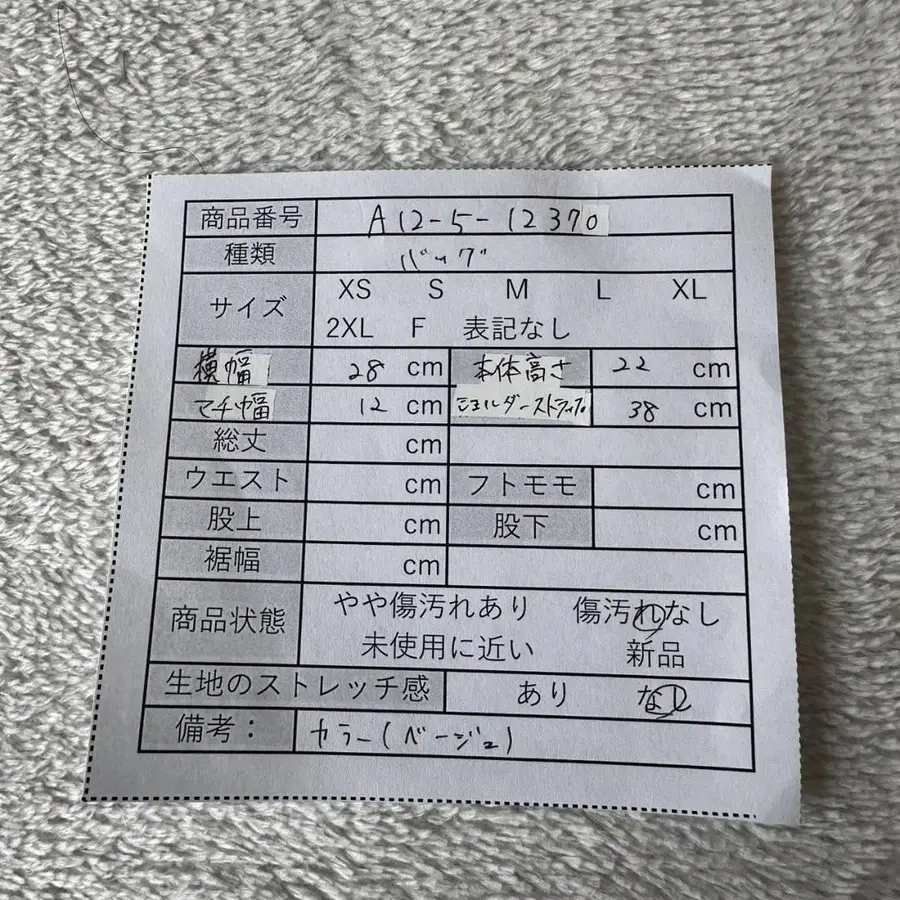 商品番号 A12-5-12370
種類 バッグ
サイズ XS S M L XL
2XL F 表記なし
横幅 28 cm 本体高さ 22 cm
マチ幅 12 cm ショルダーストラップ 38 cm
総丈 cm
ウエスト cm フトモモ cm
股上 cm 股下 cm
裾幅 cm
商品状態 やや傷汚れあり 傷汚れなし
未使用に近い 新品
生地のストレッチ感 あり なし
備考: カラー(ベージュ)